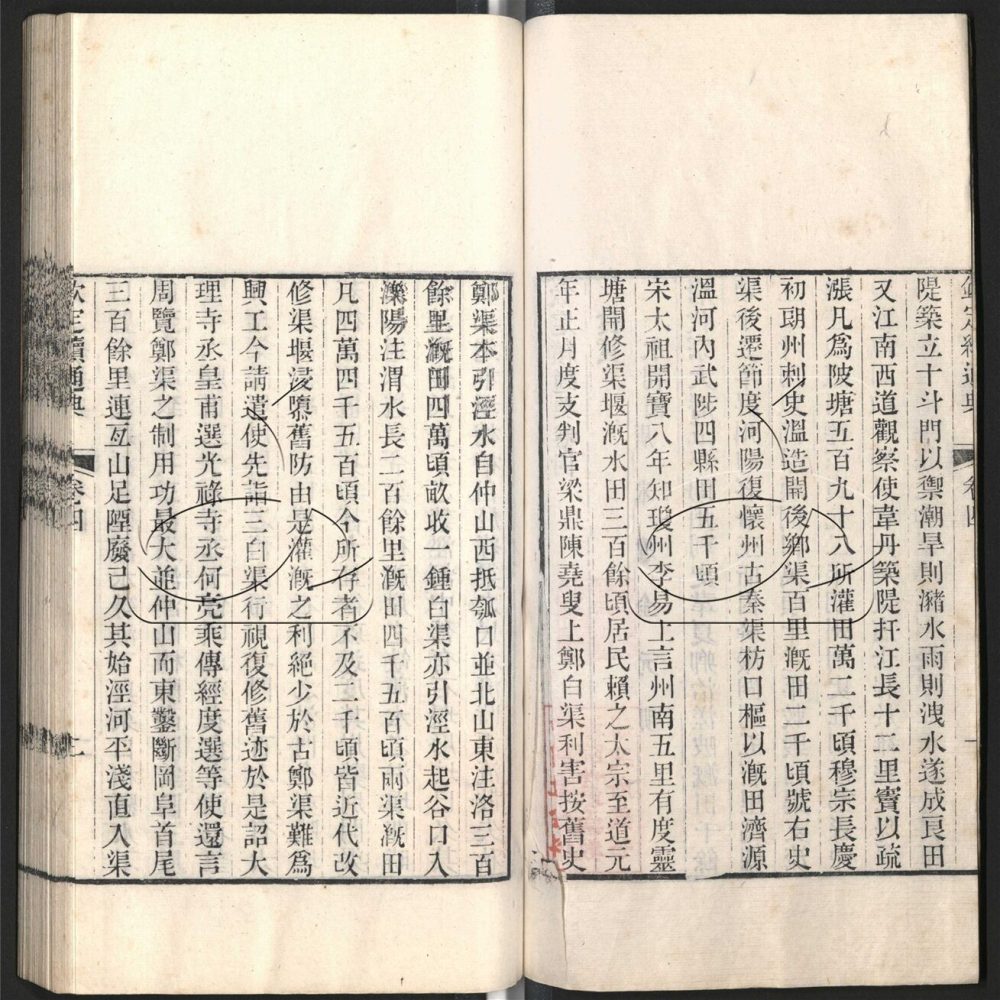 隄築立十斗門以禦潮旱則瀦水雨則洩水遂成良田
又江南西道觀察使韋丹築隄扞江長十二里竇以疏
漲凡爲陂塘五百九十八所灌田萬二千頃穆宗長慶
初朗州刺史溫造開後鄉渠百里漑田二千頃號右史
渠後遷節度河陽復懷州古秦渠枋口樞以漑田濟源
溫河內武陟四縣田五千頃
宋太祖開寶八年知瓊州李易上言州南五里有度靈
塘開修渠堰漑水田三百餘頃居民賴之太宗至道元
年正月度支判官梁鼎陳堯叟上鄭白渠利害按舊史
鄭渠本引涇水自仲山西抵瓠口並北山東注洛三百
餘里漑田四萬頃畝收一鍾白渠亦引涇水起谷口入
櫟陽注渭水長二百餘里漑田四千五百頃兩渠漑田
凡四萬四千五百頃今所存者不及二千頃皆近代改
修渠堰浸隳舊防由是灌漑之利絕少於古鄭渠難爲
興工今請遣使先詣三白渠行視復修舊迹於是詔大
理寺丞皇甫選光祿寺丞何亮乘傳經度選等使還言
周覽鄭渠之制用功最大並仲山而東鑿斷岡阜首尾
三百餘里連亙山足陻廢已久其始涇河平淺直入渠
欽定續通典 卷四